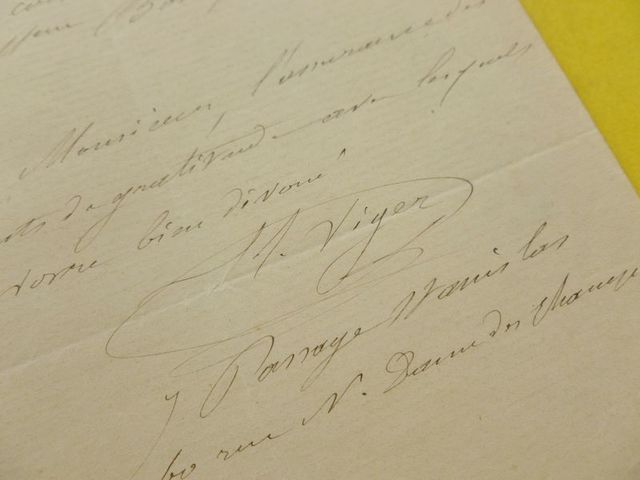 Monsieur, l'assurance des
ts de gratitude avec lesquels
votre bien dévoué
H. Viger
7 Passage Stanislas
60 rue N. Dame des Champs